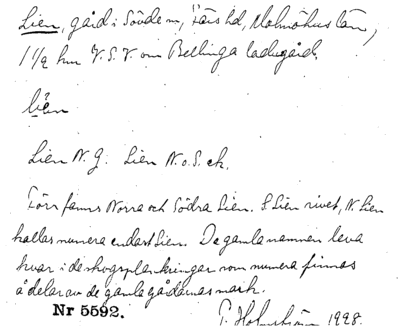 Lien, gård i Sövde sn, Färs hd, Malmöhus län,
1 1/2 km V.S.V. om Bellinga ladugård.
lìen
Lien N.G. Lien N.o.S. ek.
Förr fanns Norra och Södra Lien. S. Lien rivet, N. Lien
kallas numera endast Lien. De gamla namnen leva
kvar i de skogsplanteringar som numera finnas
å delar av de gamla gårdarnas mark.
Nr 5592.
1928.